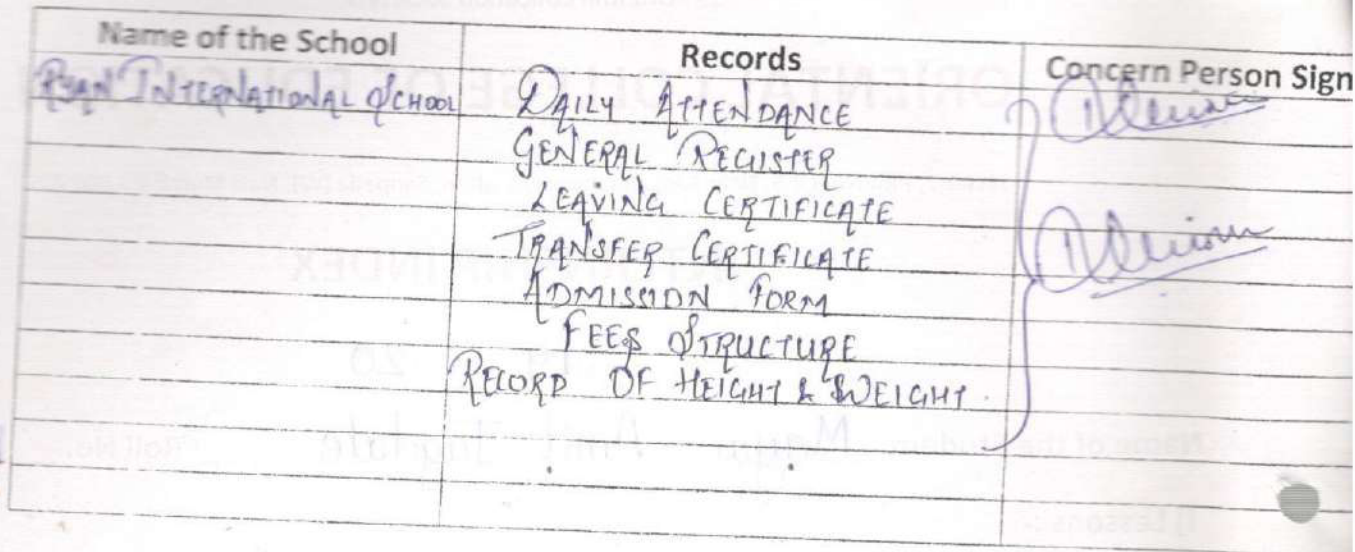 Name of the School Records Concern Person Sign
RYAN INTERNATIONAL SCHOOL DAILY ATTENDANCE
GENERAL REGISTER
LEAVING CERTIFICATE
TRANSFER CERTIFICATE
ADMISSION FORM
FEES STRUCTURE
RECORD OF HEIGHT & WEIGHT.